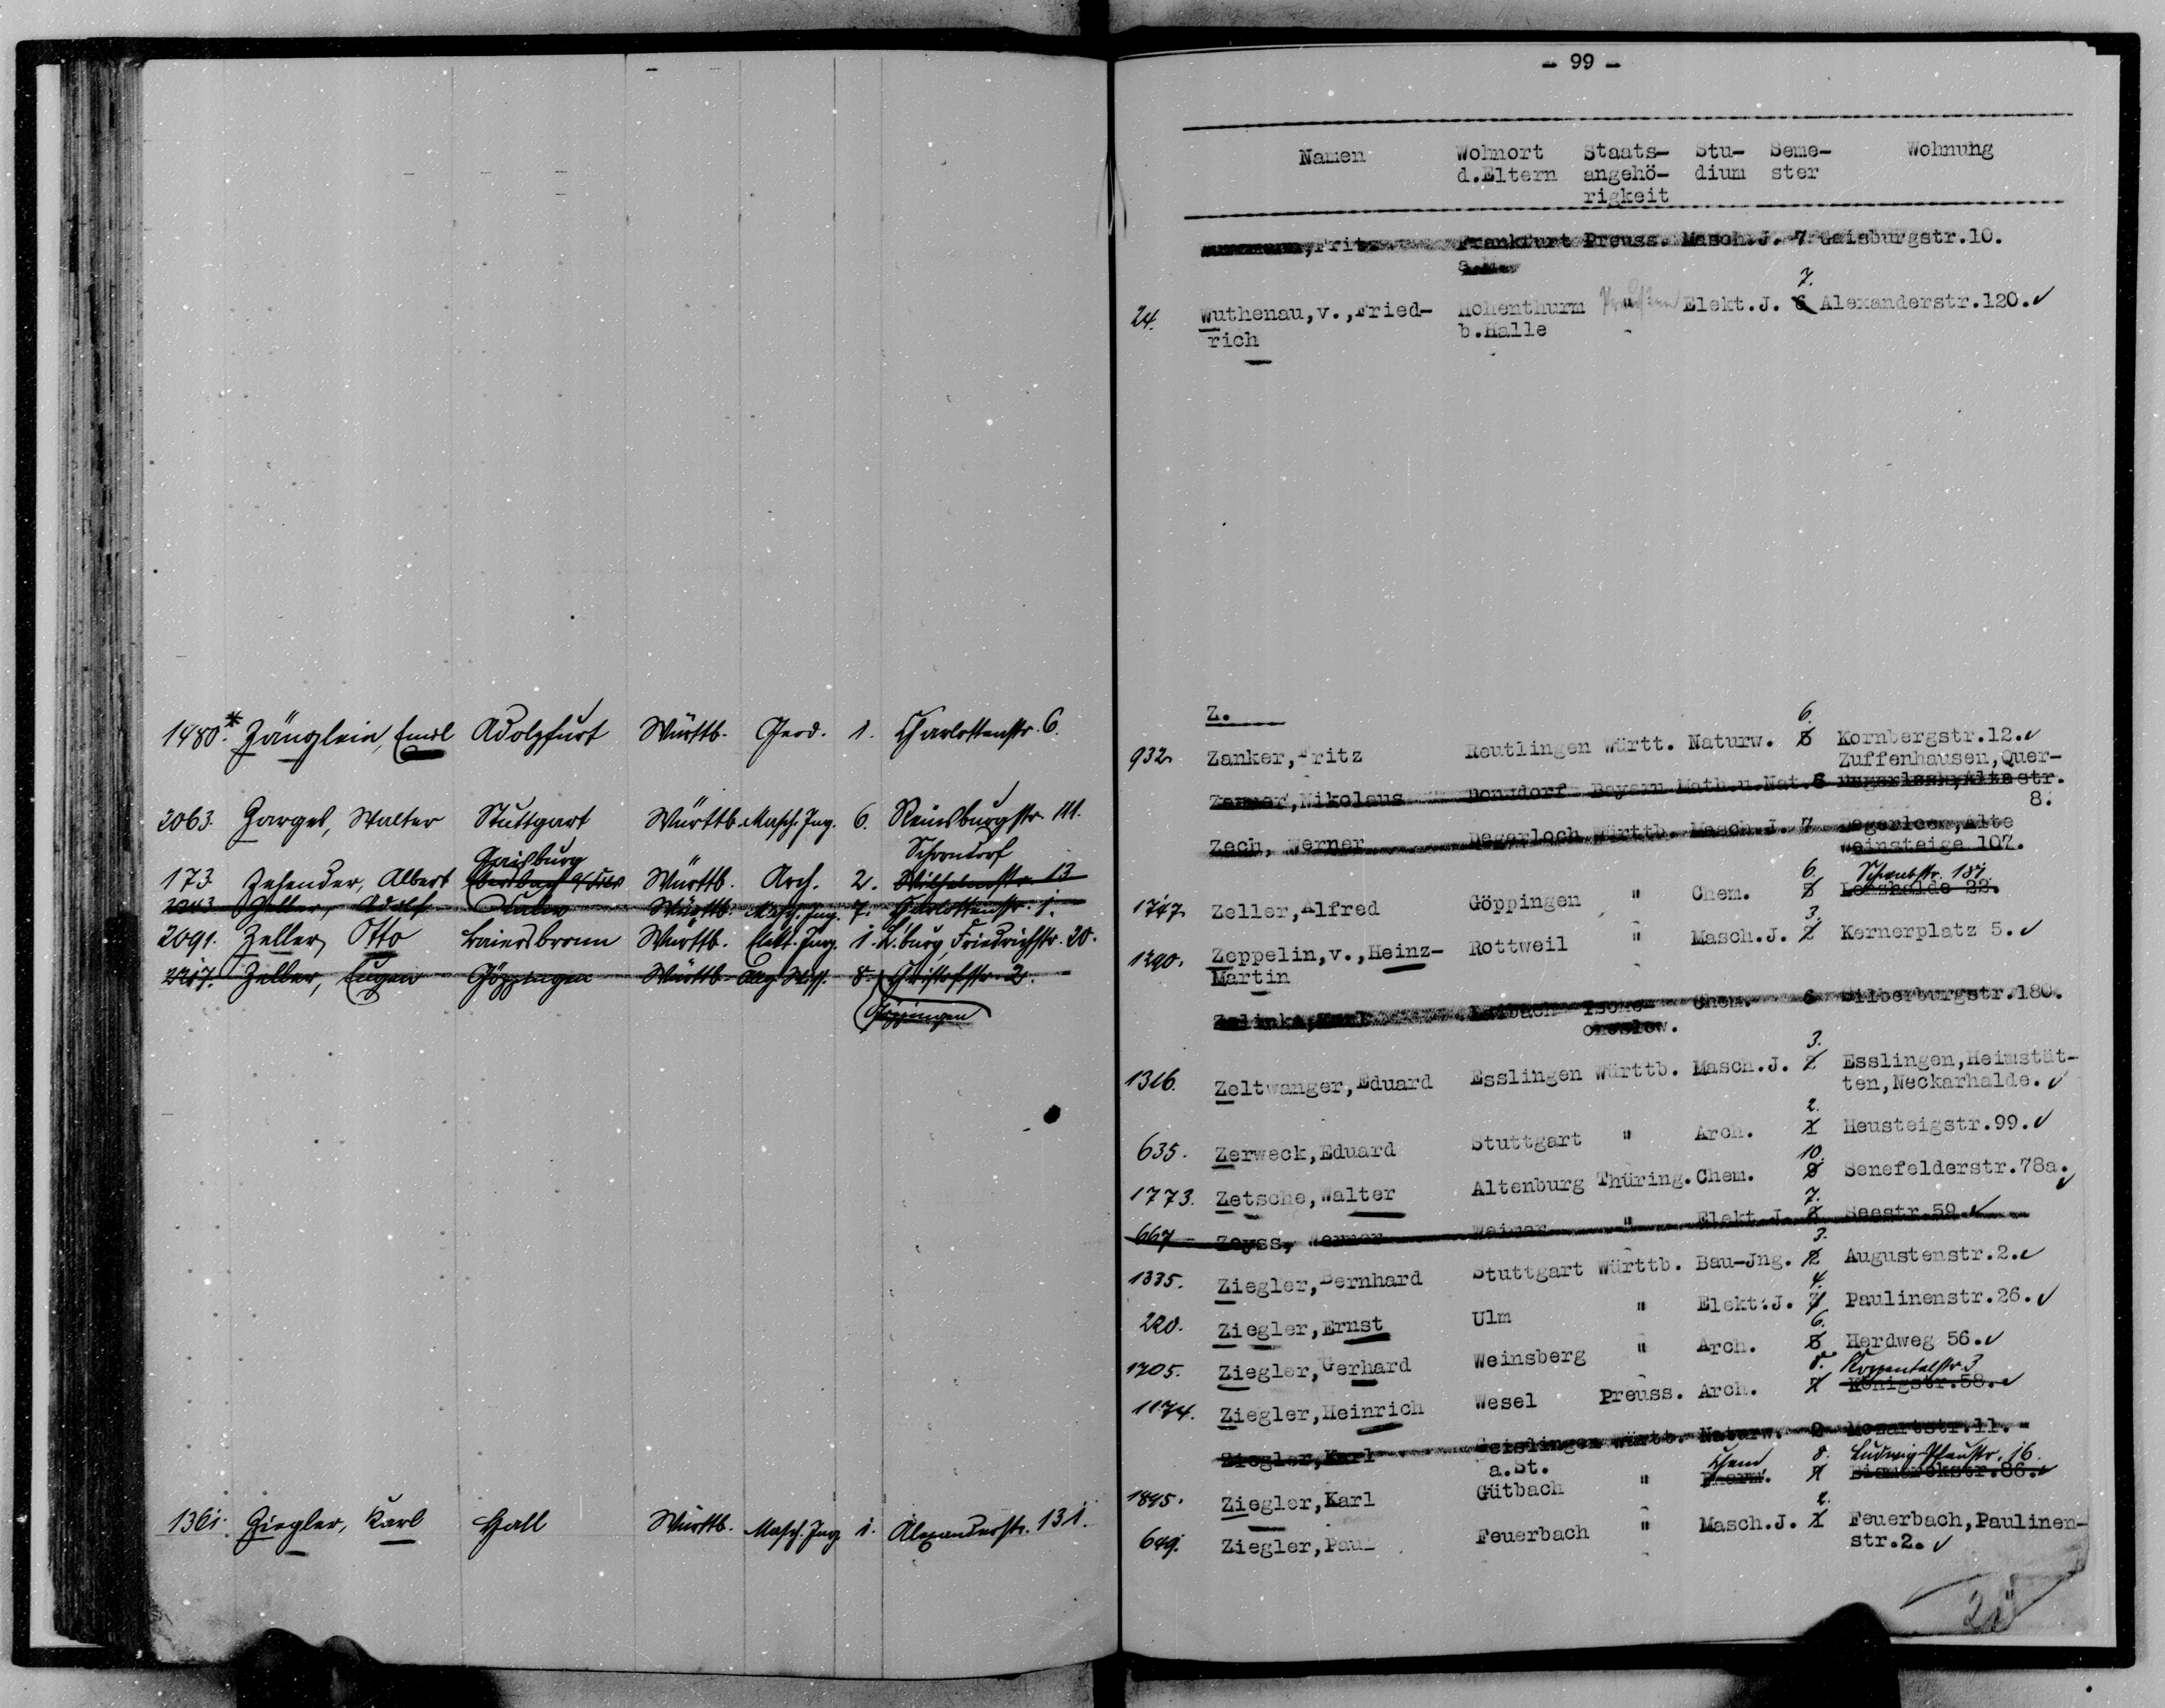 1480.* Zänglein, Emil Adolzfurt Württb. Geod. 1. Charlottenstr. 6.
2063. Zarges, Walter Stuttgart Württb. Masch. Ing. 6. Reinsburgstr. 111.
Gaisburg Schorndorf
173. Zehender, Albert Ebersbach a/Fils Württb. Arch. 2. Wilhelmstr. 13
2043 Zeller, Adolf Calw Württb. Masch. Ing. 7. Charlottenstr. 1.
2091. Zeller, Otto Baiersbronn Württb. Elekt. Ing. 1. L'burg, Friedrichstr. 20.
2217. Zeller, Eugen Göppingen Württb. Allg. Wiss. 8. Christofstr. 2.
Göppingen
1361. Ziegler, Karl Hall Württb. Masch. Ing. 1. Alexanderstr. 131.
- 99 -
Namen Wohnort Staats- Stu- Seme- Wohnung
d.Eltern angehö- dium ster
rigkeit
,Fritz Frankfurt Preuss. Masch.J. 7 Gaisburgstr.10.
a.M.
7.
24. Wuthenau,v.,Fried- Hohenthurm Preußen Elekt.J. 6 Alexanderstr.120.✓
rich b.Halle
Z.
6.
932. Zanker,Fritz Reutlingen Württ. Naturw. 5 Kornbergstr.12.✓
Zuffenhausen,Quer-
,Nikolaus Donndorf Bayern Math.u.Nat.6 Degerloch,Alte str.
8.
Zech, Werner Degerloch Württb. Masch.J. 7 Degerloch,Alte
Weinsteige 107.
6. Schwabstr. 187.
1747. Zeller,Alfred Göppingen " Chem. 5 Lenzhalde 22.
3.
1290. Zeppelin,v.,Heinz- Rottweil " Masch.J. 2 Kernerplatz 5.✓
Martin
Zelinka,Karl Laibach Tsche- Chem. 6 Silberburgstr.180.
choslow.
3.
1316. Zeltwanger,Eduard Esslingen Württb. Masch.J. 2 Esslingen,Heimstät-
ten,Neckarhalde.✓
2.
635. Zerweck,Eduard Stuttgart " Arch. 1 Heusteigstr.99.✓
10.
1773. Zetsche,Walter Altenburg Thüring.Chem. 9 Senefelderstr.78a.✓
7.
667 Zeyss, Werner Weimar " Elekt.J. 6 Seestr.59.✓
3.
1335. Ziegler,Bernhard Stuttgart Württb. Bau-Jng. 2 Augustenstr.2.✓
4.
220. Ziegler,Ernst Ulm " Elekt.J. 3 Paulinenstr.26.✓
6.
1205. Ziegler,Gerhard Weinsberg " Arch. 5 Herdweg 56.✓
8. Koppentalstr. 3
1174. Ziegler,Heinrich Wesel Preuss. Arch. 7 Königstr.58.✓
Ziegler,Karl Geislingen Württb. Naturw. 2 Mozartstr.11.
a.St. Chem 8. Ludwig Pfaustr. 16.
1895. Ziegler,Karl Gütbach " Pharm. 7 Bismarckstr.86.✓
2.
649. Ziegler,Paul Feuerbach " Masch.J. 1 Feuerbach,Paulinen-
str.2.✓